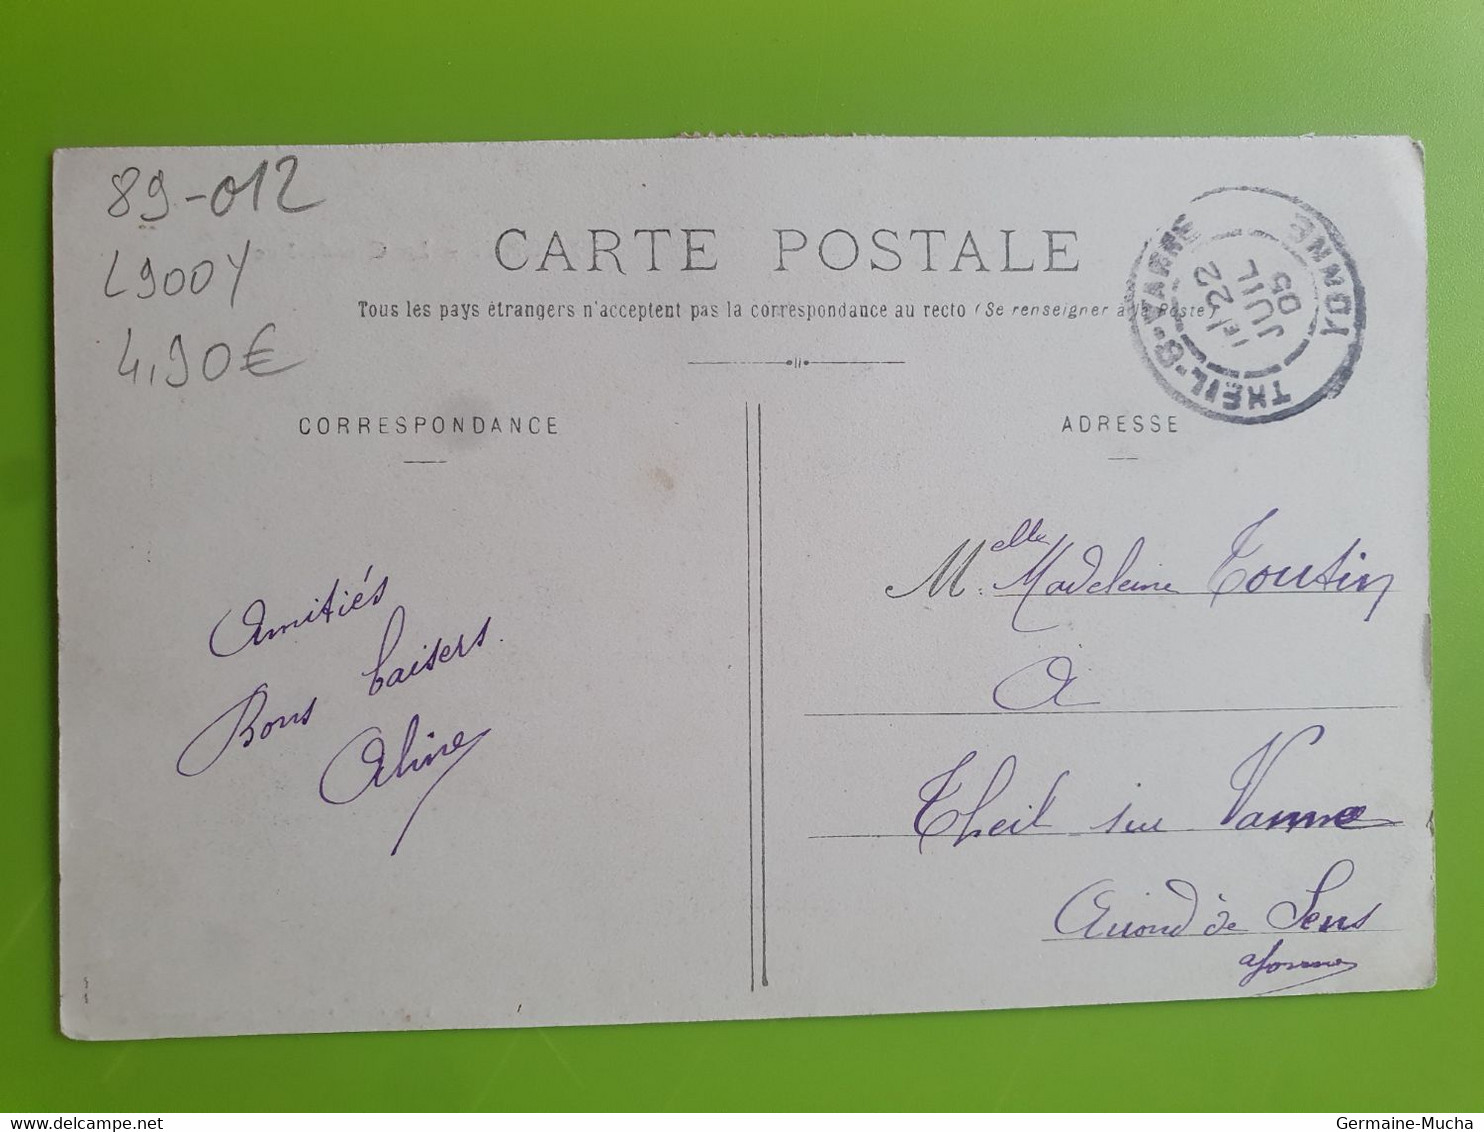 89-012
L900Y
4,90€
CARTE POSTALE
Tous les pays étrangers n'acceptent pas la correspondance au recto (Se renseigner à la Poste)
THEIL-S-VANNE
22
JUIL
05
YONNE
CORRESPONDANCE
ADRESSE
Amitiés
Bons baisers.
Aline
Melle. Madeleine Toutin
à
Theil sur Vanne
Arrond de Sens
Yonne
Germaine-Mucha